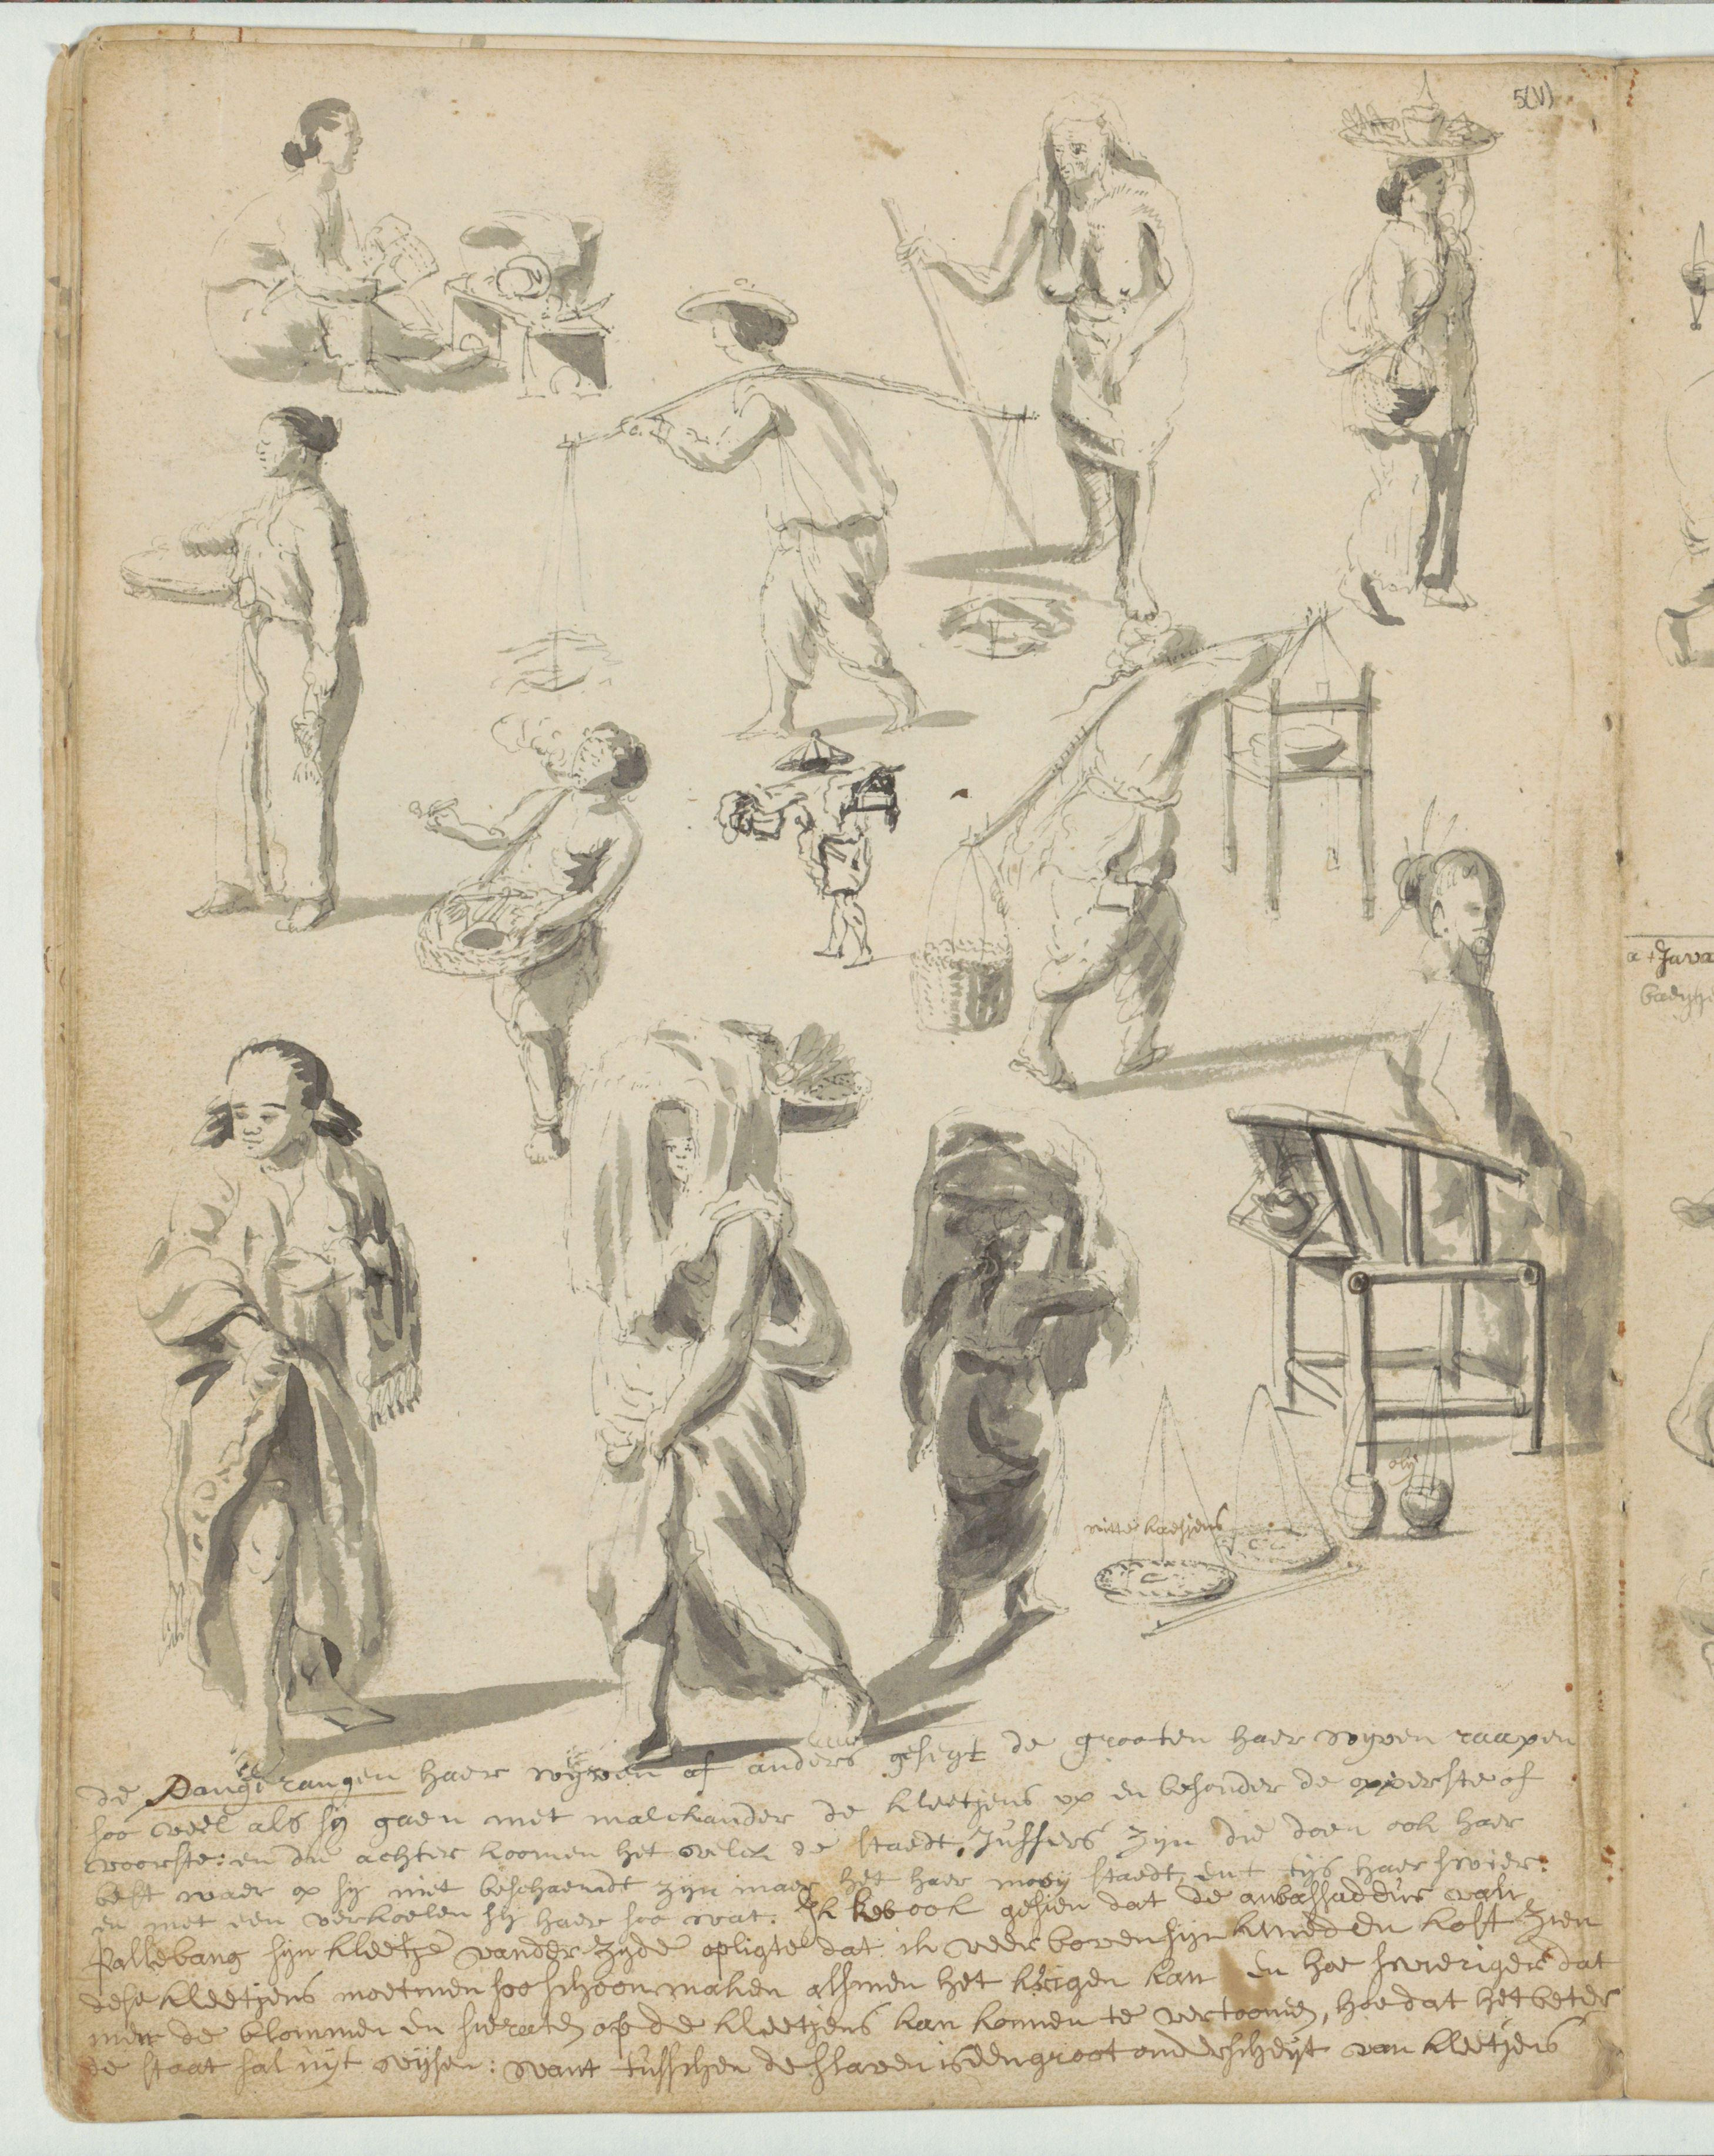 5(V)
a + Java
olij
witte kaesjens
de Pangerangen haer wijven of anders gesegt de grooten haer wijven raapen
soo veel als sij gaen met malckander de kleetjens op en besonder de opperste of
voorste: en die achter koomen het welck de staedt Juffers zijn die doen ook haer
best waer op sij niet beschaemdt zijn maer het haer mooy staedt, en t tijs haer swier:
en met een verkoelen sij haer soo wat. Ik heb ook gesien dat de ambassadeur van
Pallebang sijn kleetje vander zijde opligte dat ik veer boven sijn knieden kost zien
dese kleetjens moetmen soo schoon maken alsmen het krigen kan en hoe swieriger dat
men de blommen en sieraten op de kleetjens kan komen te vertoonen, hoe dat het beter
de staat sal uijt wijsen: want tusschen de slaven is een groot onderscheijt van kleetjens